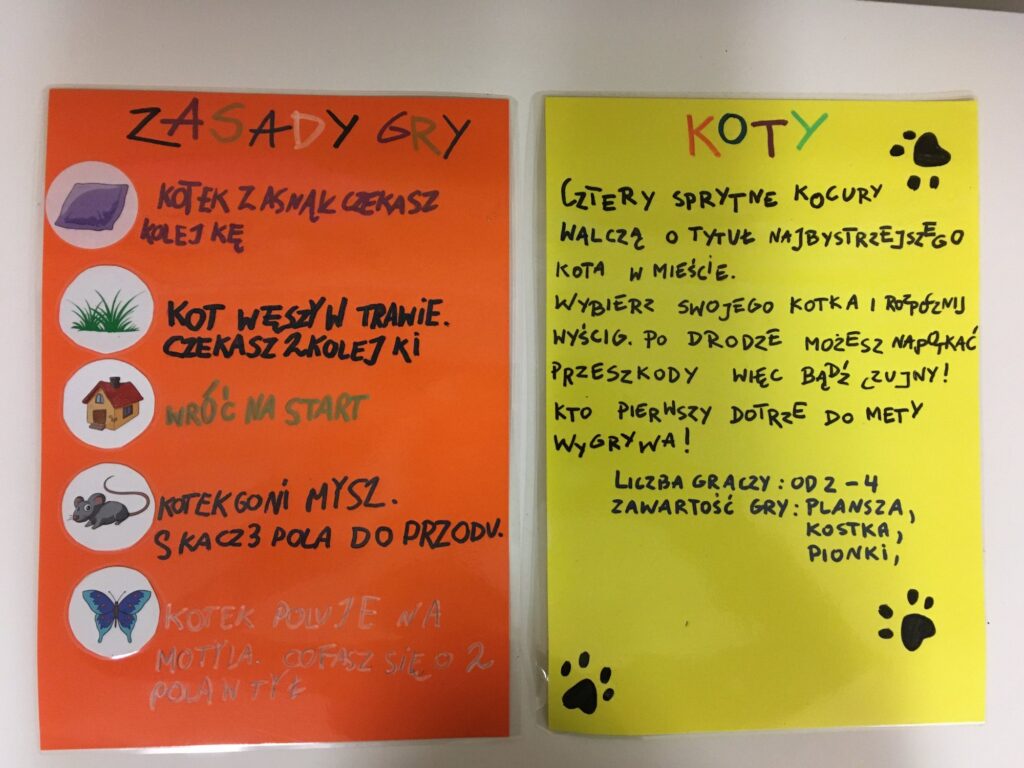 ZASADY GRY
KOTEK ZASNĄŁ CZEKASZ
KOLEJKĘ
KOT WĘSZY W TRAWIE.
CZEKASZ 2 KOLEJKI
WRÓĆ NA START
KOTEK GONI MYSZ.
SKACZ 3 POLA DO PRZODU.
KOTEK POLUJE NA
MOTYLA. COFASZ SIĘ O 2
POLA W TYŁ
KOTY
CZTERY SPRYTNE KOCURY
WALCZĄ O TYTUŁ NAJBYSTRZEJSZEGO
KOTA W MIEŚCIE.
WYBIERZ SWOJEGO KOTKA I ROZPÓZNIJ
WYŚCIG. PO DRODZE MOŻESZ NAPOTKAĆ
PRZESZKODY WIĘC BĄDŹ CZUJNY!
KTO PIERWSZY DOTRZE DO METY
WYGRYWA!
LICZBA GRACZY: OD 2-4
ZAWARTOŚĆ GRY: PLANSZA,
KOSTKA,
PIONKI,